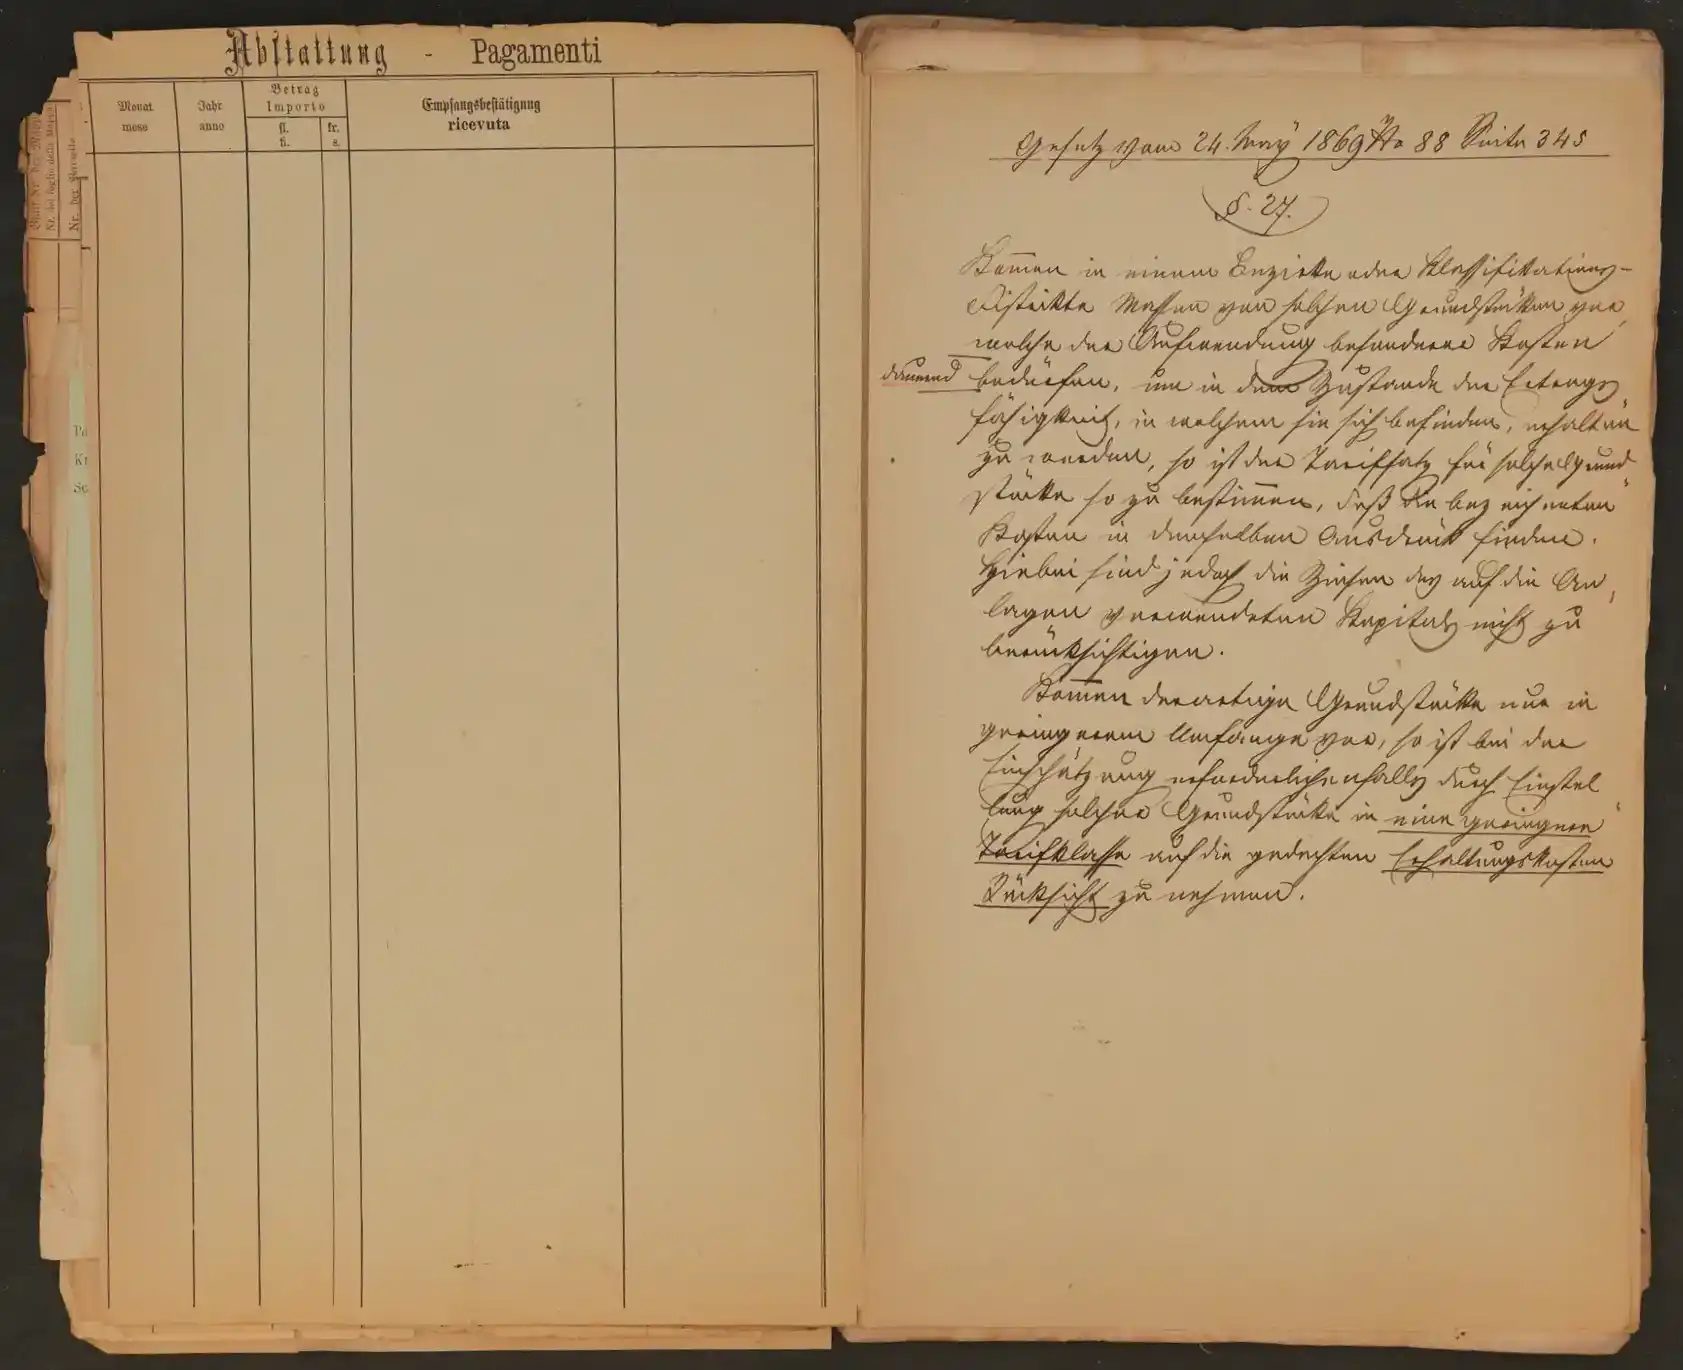 Abstattung - Pagamenti
Monat
mese
Jahr
anno
Betrag
Importo
fl.
fi.
kr.
s.
Empfangsbestätigung
ricevuta
Nr. del foglio della Mappa
Nr. der Parzelle
Gesetz vom 24. May 1869 No 88 Seite 345
§. 27.
Kom̄en in einem Bezirke oder Klassifikations-
Distrikte Massen von solchen Grundstücken vor,
welche der Aufwendung besonderer Kosten
dauernd bedürfen, um in dem Zustande der Ertrags
fähigkeit, in welchem sie sich befinden, erhalten
zu werden, so ist der Tarifsatz für solche Grund
stücke so zu bestim̄en, daß die bezeichneten
Kosten in demselben Ausdruck finden.
Hiebei sind jedoch die Zinsen des auf die An,
lagen verwendeten Kapitals nicht zu
berücksichtigen.
Kom̄en derartige Grundstücke nur in
geringerem Umfange vor, so ist bei der
Einschätzung erforderlichenfalls durch Einstel
lung solcher Grundstücke in eine geringere
Tarifklasse auf die gedachten Erhaltungskosten
Rücksicht zu nehmen.